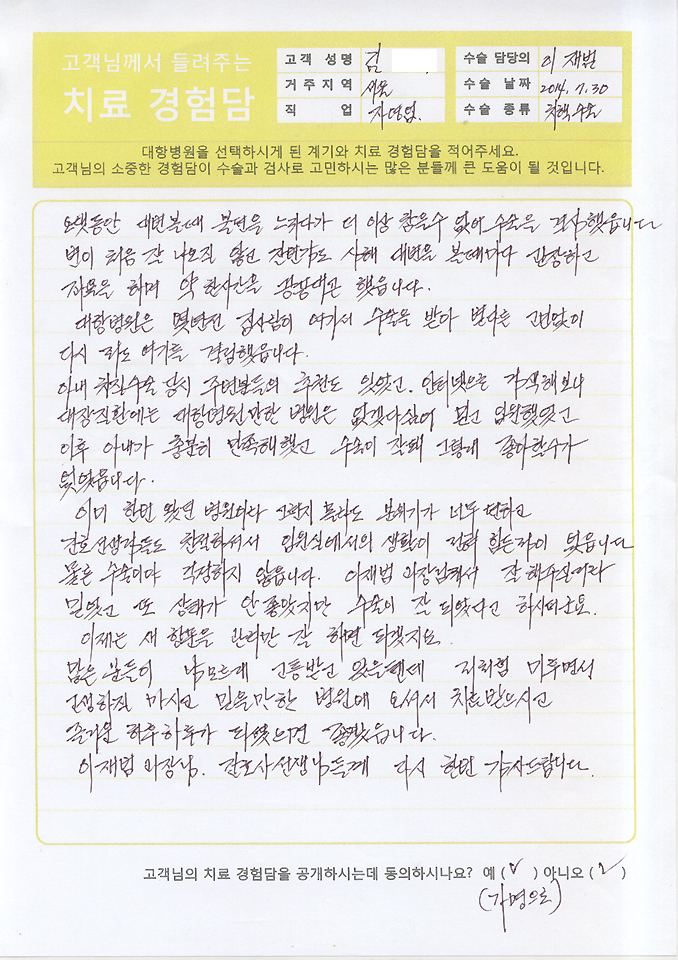 고객님께서 들려주는
치료 경험담
고객 성명 김
수술 담당의 이재범
거주지역 서울
수술 날짜 2014. 7. 30
직 업 자영업.
수술 종류 치핵수술
대항병원을 선택하시게 된 계기와 치료 경험담을 적어주세요.
고객님의 소중한 경험담이 수술과 검사로 고민하시는 많은 분들께 큰 도움이 될 것입니다.
오랫동안 대변볼때 불편을 느끼다가 더 이상 참을수 없어 수술을 결심했읍니다
변이 처음 잘 나오질 않고 잔변감도 심해 대변을 볼때마다 긴장하고
좌욕을 하며 약 한시간을 허비했읍니다.
대항병원은 몇년전 집사람이 여기서 수술을 받아 별다른 고민없이
다시 저도 여기를 결심했읍니다.
아내 치질수술 당시 주변분들의 추천도 있었고. 인터넷으로 검색해보니
대장질환에는 대항병원만한 병원은 없겠다싶어 믿고 입원했었고
이후 아내가 충분히 만족해했고 수술이 잘돼 그렇게 좋아할수가
없었읍니다.
이미 한번 왔던 병원이라 그런지 몰라도 분위기가 너무 편하고
간호선생님들도 친절하셔서 입원실에서의 생활이 전혀 힘든점이 없읍니다
물론 수술이야 걱정하지 않읍니다. 이재범 과장님께서 잘 해주실거라
믿었고 또 상태가 안좋았지만 수술이 잘 되었다고 하시더군요.
이제는 새 항문을 관리만 잘 하면 되겠지요.
많은 분들이 남모르게 고통받고 있을텐데 저처럼 미루면서
고생하질 마시고 믿을만한 병원에 오셔서 치료받으시고
즐거운 하루하루가 되었으면 좋겠읍니다.
이재범 과장님. 간호사선생님들께 다시 한번 감사드립니다.
고객님의 치료 경험담을 공개하시는데 동의하시나요? 예 (✓) 아니오 (✓)
(가명으로)